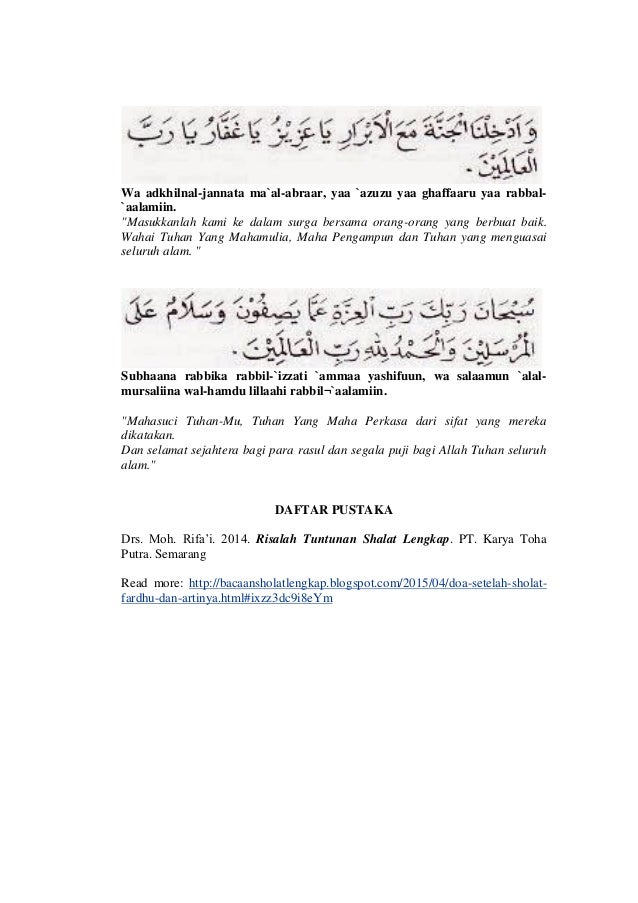 وَاَدْخِلْنَا الْجَنَّةَ مَعَ الْاَبْرَارِ يَا عَزِيْزُ يَا غَفَّارُ يَا رَبَّ
الْعَالَمِيْنَ.
Wa adkhilnal-jannata ma`al-abraar, yaa `azuzu yaa ghaffaaru yaa rabbal-
`aalamiin.
"Masukkanlah kami ke dalam surga bersama orang-orang yang berbuat baik.
Wahai Tuhan Yang Mahamulia, Maha Pengampun dan Tuhan yang menguasai
seluruh alam. "
سُبْحَانَ رَبِّكَ رَبِّ الْعِزَّةِ عَمَّا يَصِفُوْنَ وَسَلَامٌ عَلَى
الْمُرْسَلِيْنَ وَالْحَمْدُ لِلّٰهِ رَبِّ الْعَالَمِيْنَ.
Subhaana rabbika rabbil-`izzati `ammaa yashifuun, wa salaamun `alal-
mursaliina wal-hamdu lillaahi rabbil¬`aalamiin.
"Mahasuci Tuhan-Mu, Tuhan Yang Maha Perkasa dari sifat yang mereka
dikatakan.
Dan selamat sejahtera bagi para rasul dan segala puji bagi Allah Tuhan seluruh
alam."
DAFTAR PUSTAKA
Drs. Moh. Rifa’i. 2014. Risalah Tuntunan Shalat Lengkap. PT. Karya Toha
Putra. Semarang
Read more: http://bacaansholatlengkap.blogspot.com/2015/04/doa-setelah-sholat-
fardhu-dan-artinya.html#ixzz3dc9i8eYm